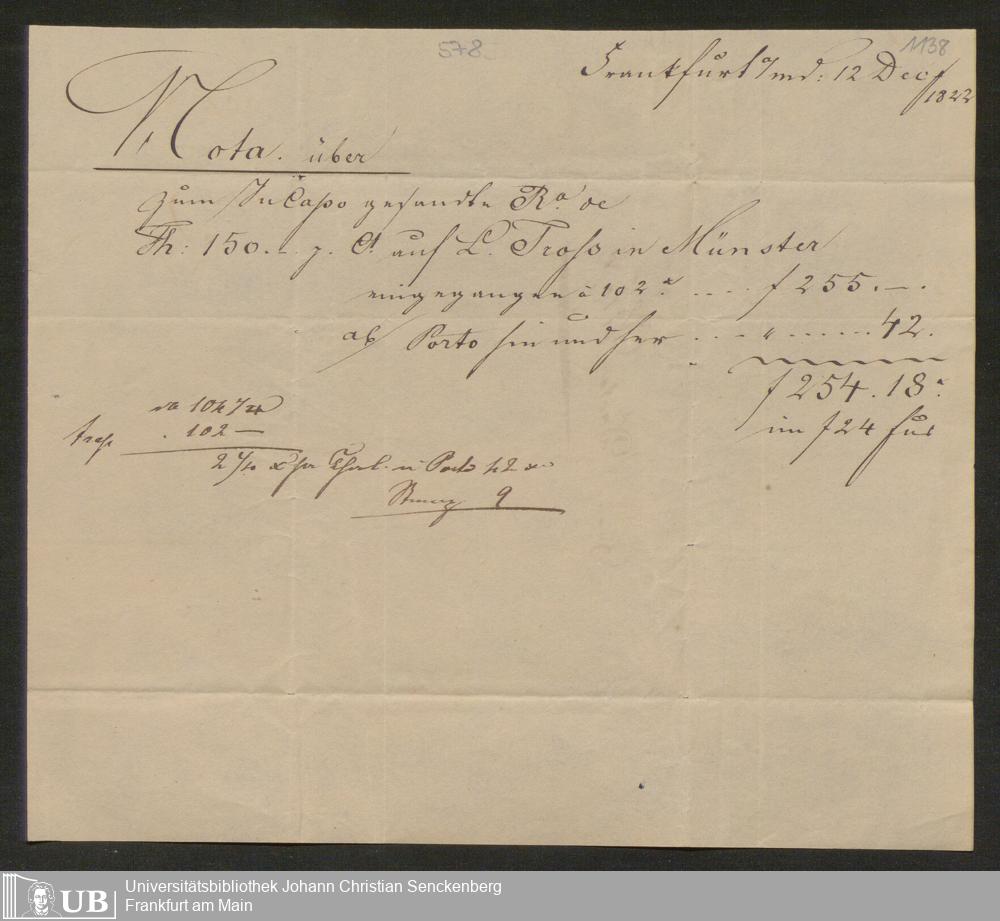 578
1138
Frankfurt a/m d: 12 Dec 1822
Nota über
zum InCasso gesandte Ra de
Th: 150. – p. Ct auf L. Tross in Münster
eingegangen à 102 x .... f 255. –.
ab Porto hin und her ... " ..... 42.
f 254. 18 x
im f 24 fus
102 —
Porto 42 x
9
UB
Universitätsbibliothek Johann Christian Senckenberg
Frankfurt am Main